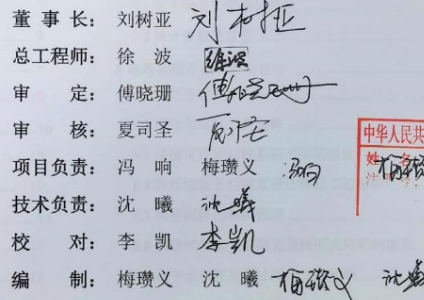 董 事 长： 刘树亚 刘树亚
总工程师： 徐 波 徐波
审 定： 傅晓珊 傅晓珊
审 核： 夏司圣
项目负责： 冯 响 梅瓒义 冯响
技术负责： 沈 曦 沈曦
校 对： 李 凯 李凯
编 制： 梅瓒义 沈 曦 梅瓒义 沈曦
中华人民共
姓 名
注